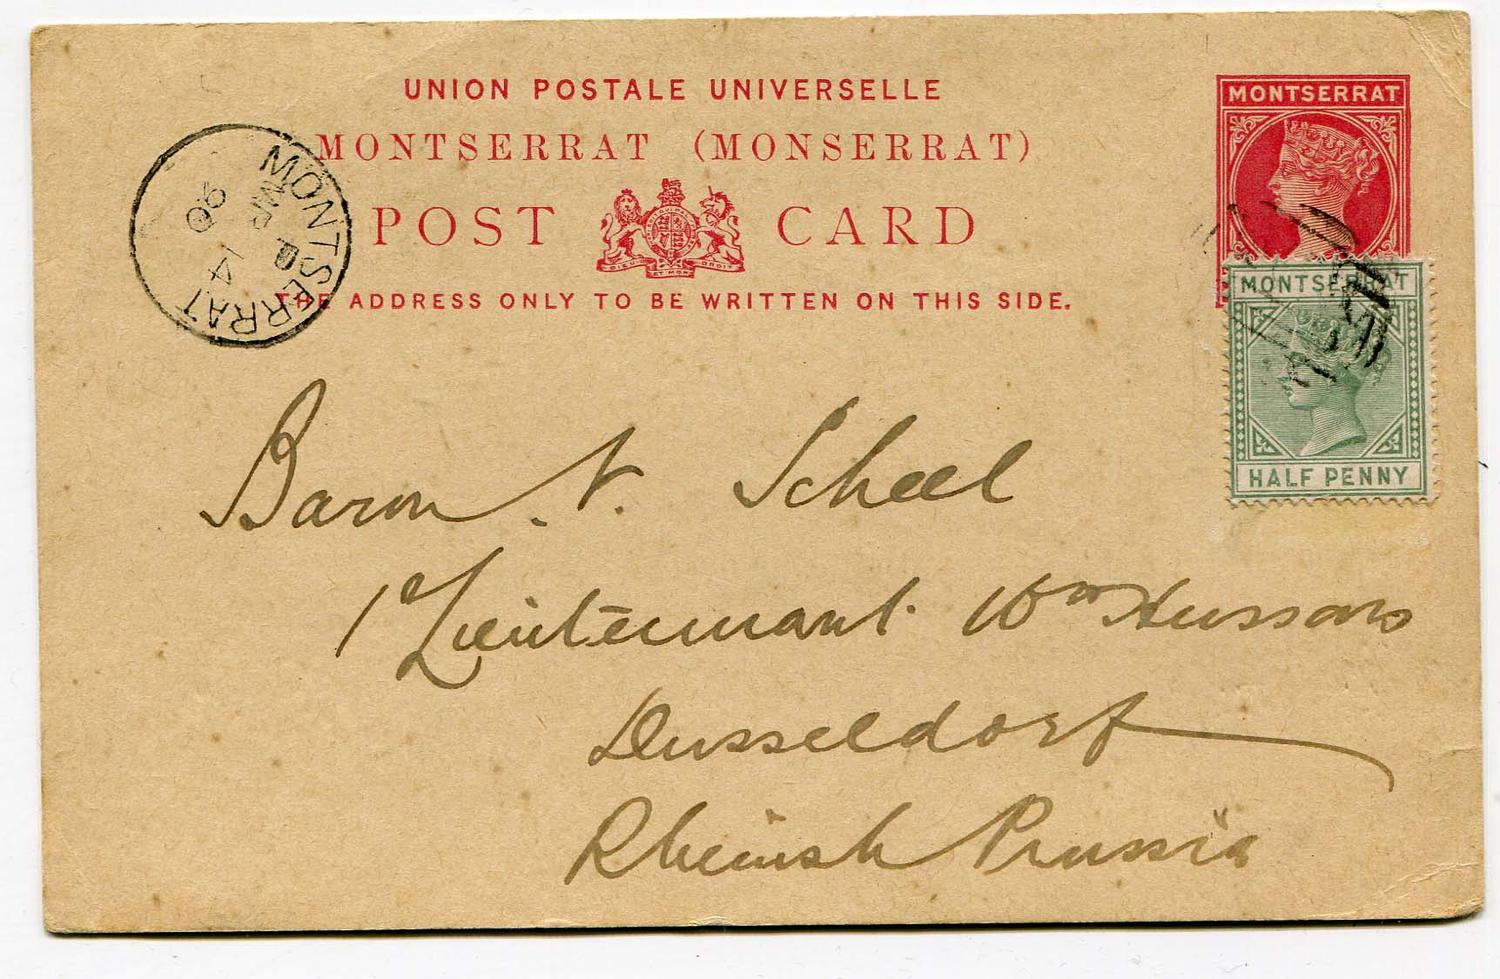 UNION POSTALE UNIVERSELLE
MONTSERRAT (MONSERRAT)
POST CARD
DIEU ET MON DROIT
THE ADDRESS ONLY TO BE WRITTEN ON THIS SIDE.
MONTSERRAT
MONTSERRAT
HALF PENNY
MONTSERRAT
MR 14
90
Baron v. Scheel
1 Lieutenant.
Hussars
Dusseldorf
Rheinish Prussia